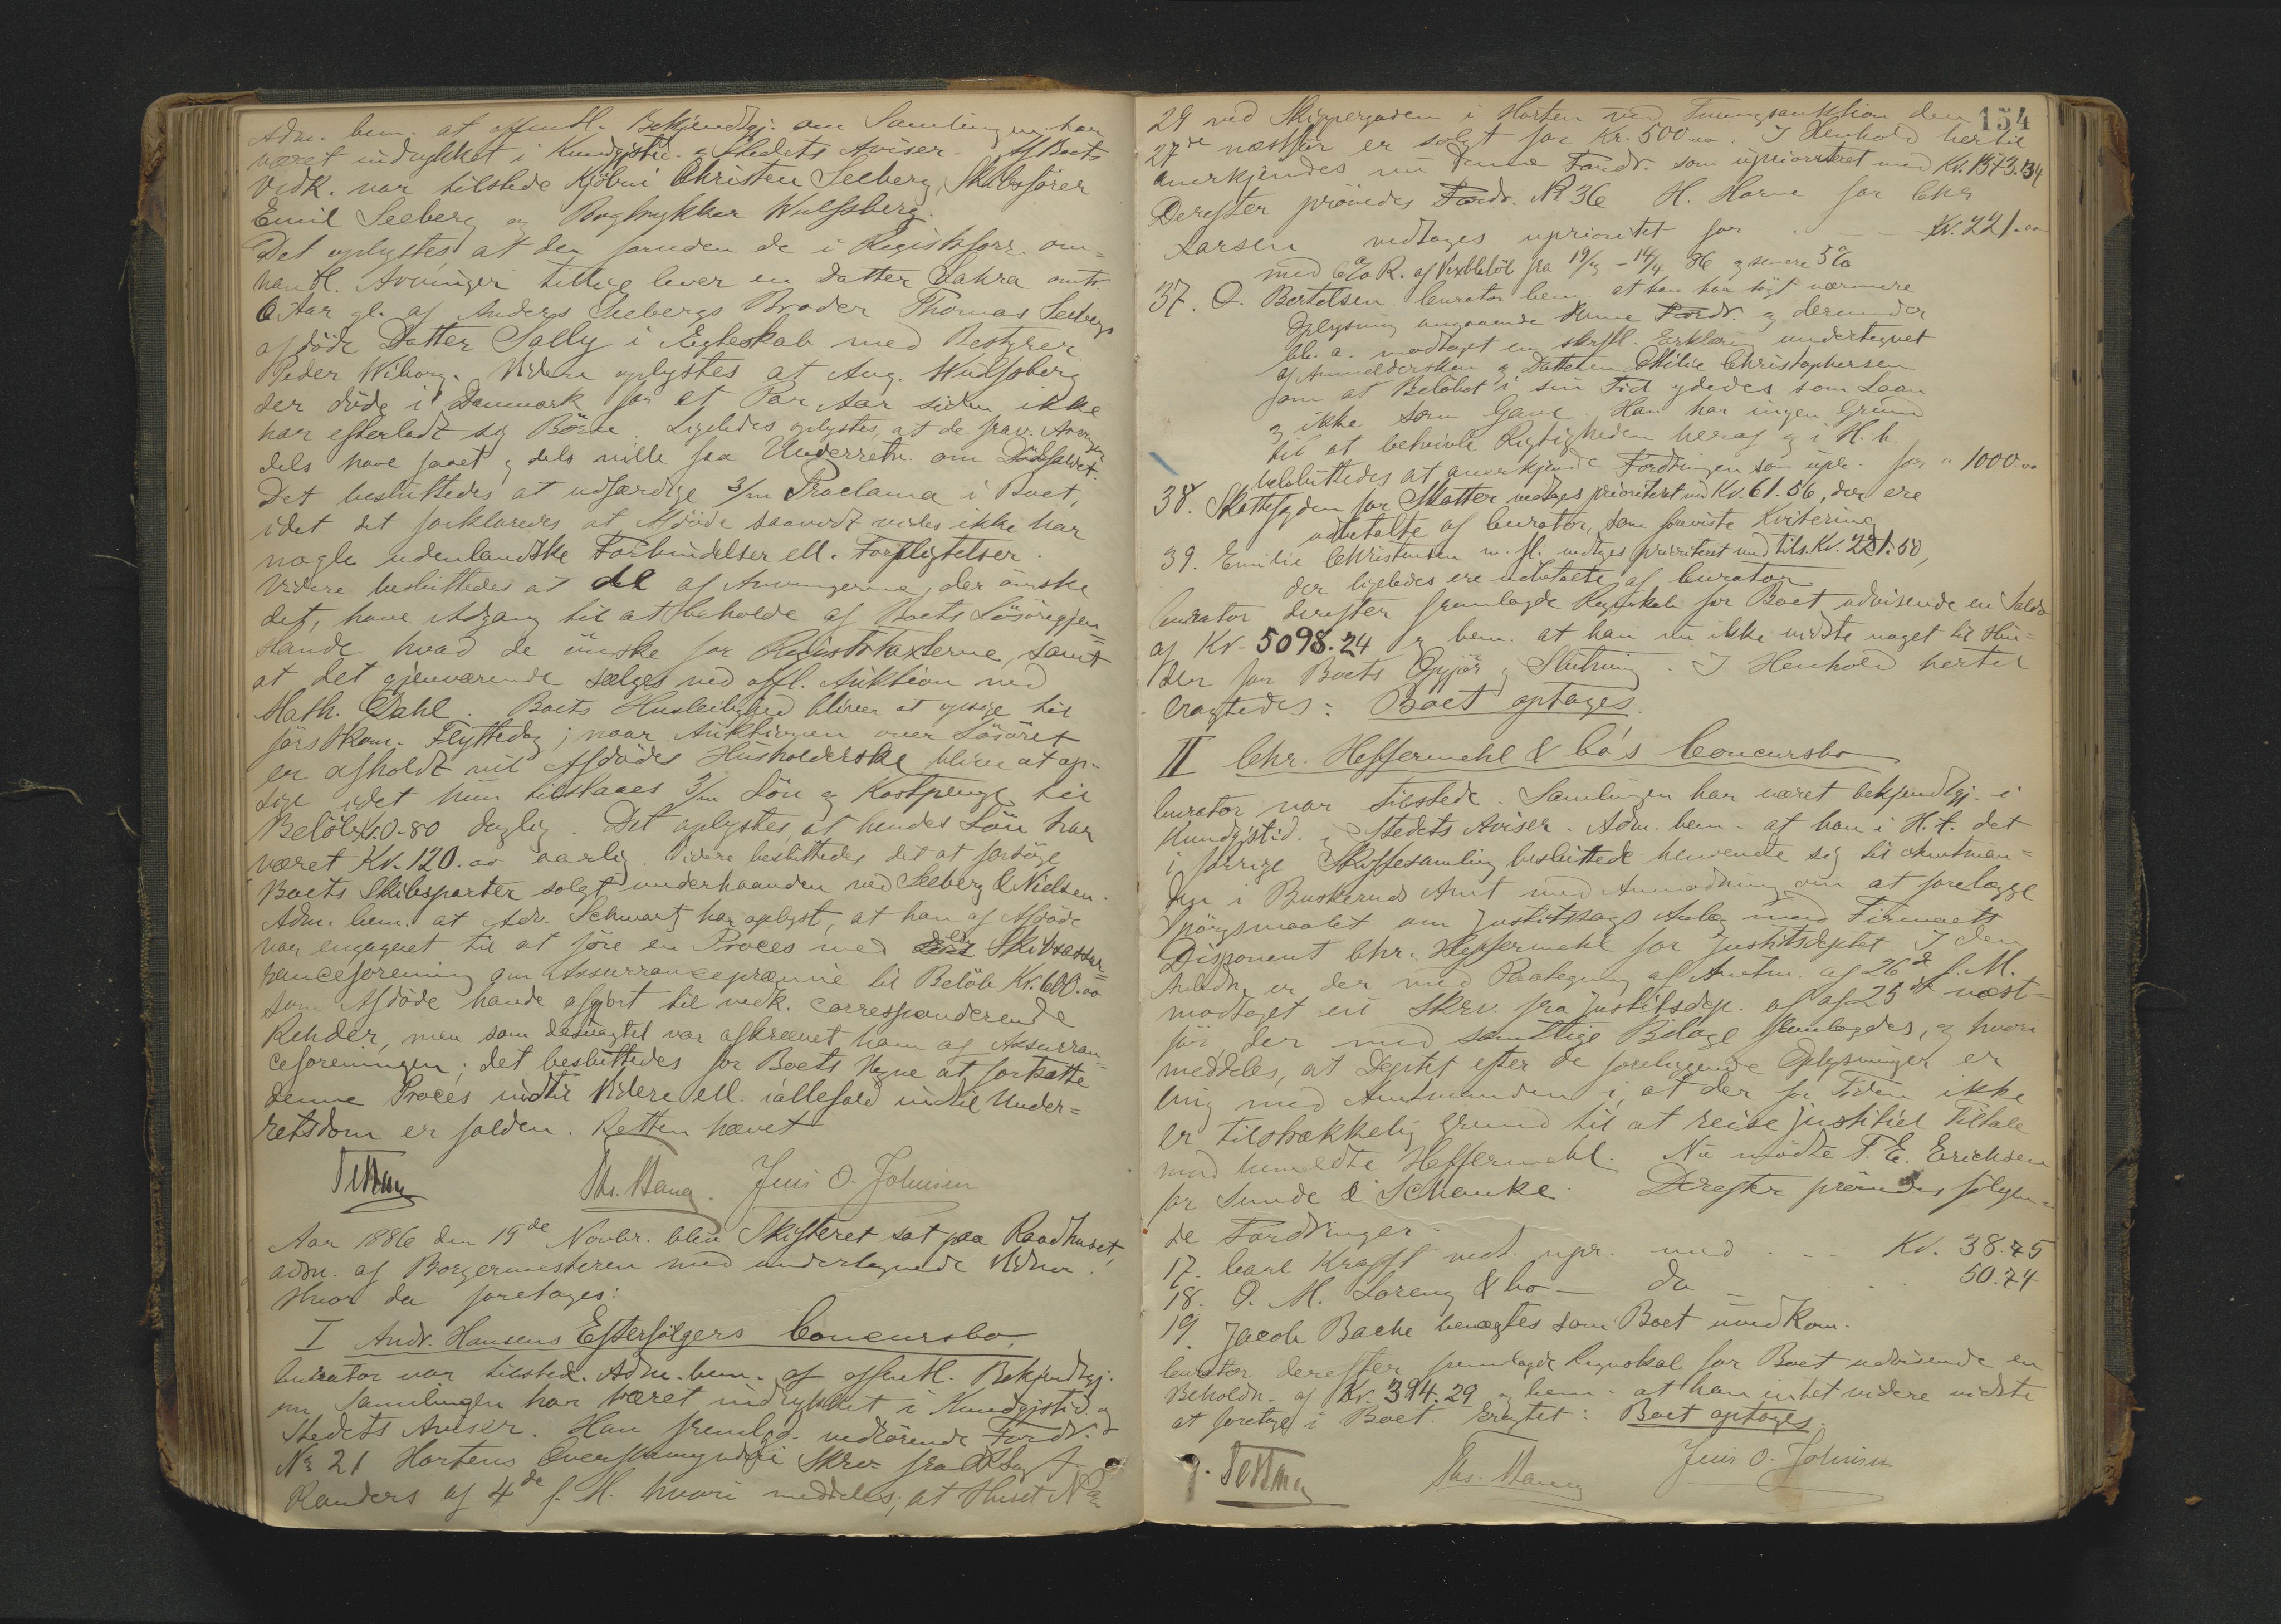 Adm. bem. at offentl. Bekjendtgj. om Samlingen har
været indrykket i Kundgjtid. & Stedets Aviser. Af Boets
Vedk. var tilstede Kjöbm. Christen Seeberg, Skibsförer
Emil Seeberg og Bogtrykker Wulfsberg.
Det oplystes at der foruden de i Registrforr. om-
handl. Arvinger tillige lever en Datter Zahra omtr
6 Aar gl. af Anders Seebergs Broder Thomas Seebergs
afdöde Datter Sally i Egteskab med Bestyrer
Peder Wiborg. Videre oplystes at Aug. Wulfsberg
der döde i Danmark for et Par Aar siden ikke
har efterladt sig Börn. Ligeledes oplystes, at de frav. Arvinger
dels have faaet og dels ville faa Underretn. om Dödsfaldet.
Det besluttedes at udfærdige 3/m Proclama i Boet,
idet det forklaredes at Afdöde saavidt vides ikke har
nogle udenlandske Forbindelser ell. Forpligtelser.
Videre besluttedes at de af Arvingerne, der önske
det, have Adgang til at beholde af Boets Lösöregjen-
stande hvad de önske for Registrtaxterne, samt
at det gjenværende sælges ved offl. Auktion ved
Math. Dahl. Boets Husleilighed bliver at opsige til
förstkom. Flyttedag; naar Auktionen over Lösöret
er afholdt vil Afdödes Husholderske blive at op-
sige idet hun tilstaaes 3/m Lön og Kostpenge til
Belöb Kr. 0.80 daglig. Det oplystes, at hendes Lön har
været Kr. 120.00 aarlig. Videre besluttedes det at forsöge
Boets Skibsparter solgt underhaanden ved Seeberg & Nielsen.
Adm. bem. at Adv. Schwartz har oplyst, at han af Afdöde
var engageret til at före en Proces med Skibsassu-
ranceforening om Assurrancepræmie til Belöb Kr. 600.00
som Afdöde havde afgjort til vedk. corresponderende
Rehder, men som desuagtet var afkrævet ham af Assurran-
ceforeningen; det besluttedes for Boets Vegne at fortsætte
denne Proces indtil Videre ell. iallefald indtil Under-
retsdom er falden. Retten hævet
Ths. Hang. Jens O. Johnsen
Aar 1886 den 19de Novbr. blev Skifteret sat paa Raadhuset,
adm. af Borgermesteren med undertegnede Vidner.
Hvor da foretoges:
I Andr. Hansens Efterfölgers Concursbo
Curator var tilsted. Adm. bem. at offentl. Bekjendtgj.
om Samlingen har været indrykket i Kundgjtid. og
Stedets Aviser. Han fremlgd. vedrörende Fordr.
No 21 Hortens Overformynderi Skrv. fra
Randers af 4de f. M. hvori meddeles, at Huset No
154
29 ved Skippergaden i Horten ved Tvangsauktion den
27de næstför er solgt for Kr. 500.00. I Henhold hertil
anerkjendes nu denne Fordr. som uprioriteret med Kr. 1373.34
Derefter prövedes Fordr. No 36 H. Horne for Chr
Larsen vedtages uprioritet for Kr. 221.00
med 6% R. af Vexbelöb fra 19/3 - 14/4 86 og senere 5%
37. O. Bertelsen. Curator bem. at han har sögt nærmere
Oplysning angaaende denne Fordr. og derunder
bl. a. modtaget en skriftl. Erklæring undertegnet
af Anmeldersken og Datteren Emilie Christophersen
om at Belöbet i sin Tid ydedes som Laan
og ikke som Gave. Han har ingen Grund
til at betvivle Rigtigheden heraf og i H. h.
besluttedes at anerkjende Fordringen som upr. for " 1000.00
38. Skattefogden for Skatter vedtages prioriteret m. Kr. 61.56, der ere
udbetalte af Curator, som foreviste Kvitering
39. Emilie Christensen m. fl. vedtages prioriteret med tils. Kr. 221.50,
der ligeledes ere udbetalte af Curator
Curator derefter fremlagde Regnskab for Boet udvisende en Saldo
af Kr. 5098.24 og bem. at han nu ikke vidste noget til Hin-
der for Boets Opgjör og Slutning. I Henhold hertil
eragtedes: Boet optages.
II Chr. Heffermehl & Co's Concursbo
Curator var tilstede. Samlingen har været bekjendtgj. i
Kundgjtid. og Stedets Aviser. Adm. bem. at han i H. t. det
i forrige Skiftesamling besluttede henvendte sig til Amtman-
den i Buskeruds Amt med Anmodning om at forelægge
Spörgsmaalet om Justitssags Anlæg mod Firmaets
Disponent Chr. Heffermehl for Justitsdeptet. I den
Anledn. er der med Paategning af Amtm. af 26de f. M.
modtaget en Skrv. fra Justitsdep. af 25de næst-
för der med samtlige Bilage fremlagdes, og hvori
meddeles, at Deptet efter de foreliggende Oplysninger er
enig med Amtmanden i, at der for Tiden ikke
er tilstrækkelig Grund til at reise justitiel Tiltale
mod bemeldte Heffermehl. Nu mödte T. E. Erichsen
for Sunde & Schanke. Derefter prövedes fölgen-
de Fordringer:
17. Carl Krafft vedt. upr. med Kr. 38.75
18. O. M. Loreng & Co - do - 50.74
19. Jacob Bache benægtes som Boet uvedkom.
Curator derefter fremlagde Regnskab for Boet udvisende en
Beholdn. af Kr. 394.29 og bem. at han intet videre vidste
at foretage i Boet. Eragtet: Boet optages.
Ths. Hang Jens O. Johnsen